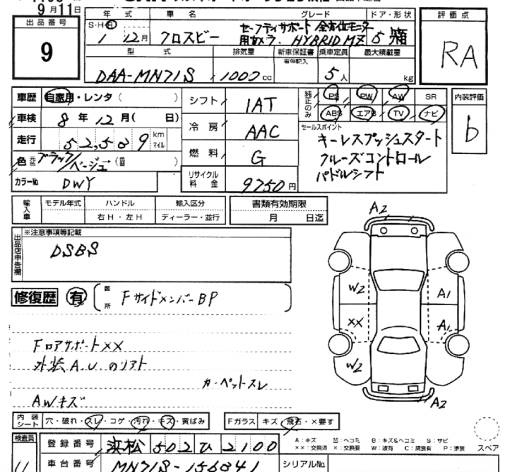 9月11日
出品番号 9
年式 車名 グレード ドア・形状 評価点
S・H・ 1年12月 クロスビー セーフティサポート 全方位モニター
用カメラ. HYBRID MZ 5 箱
RA
型式 排気量 新車保証書 乗車定員 最大積載量
DAA-MN71S 1000cc 5人 kg
車歴 自家用・レンタ( ) シフト IAT
PS PW AW SR 内装評価
ABS エアB TV ナビ b
車検 8年12月( 日) 冷房 AAC
セールスポイント
キーレスプッシュスタート
クルーズコントロール
パドルシフト
走行 52,509 km マイル
燃料 G
色 ブラック/ベージュ( )
リサイクル料金 9750円
カラーNo DWY
輸入車 モデル年式 ハンドル 輸入区分 書類有効期限
右H・左H ディーラー・並行 月 日迄
出品店申告欄 ※注意事項等記載
DSBS
修復歴 有 箇所 FサイドメンバーBP
Fロアサポート××
外装A,Uのリフト
カーペットスレ
AWキズ
A2
W2 A1
×× A1
W2 W2
A2
内装シート 穴・破れ・スレ・コゲ・汚れ・キズ・黄ばみ Fガラス キズ・飛石・×要す
A:キズ U:ヘコミ B:キズ&ヘコミ S:サビ
スペア
検査員 登録番号 浜松 502 ひ 2100
車台番号 MN71S-156341 シリアルNo.